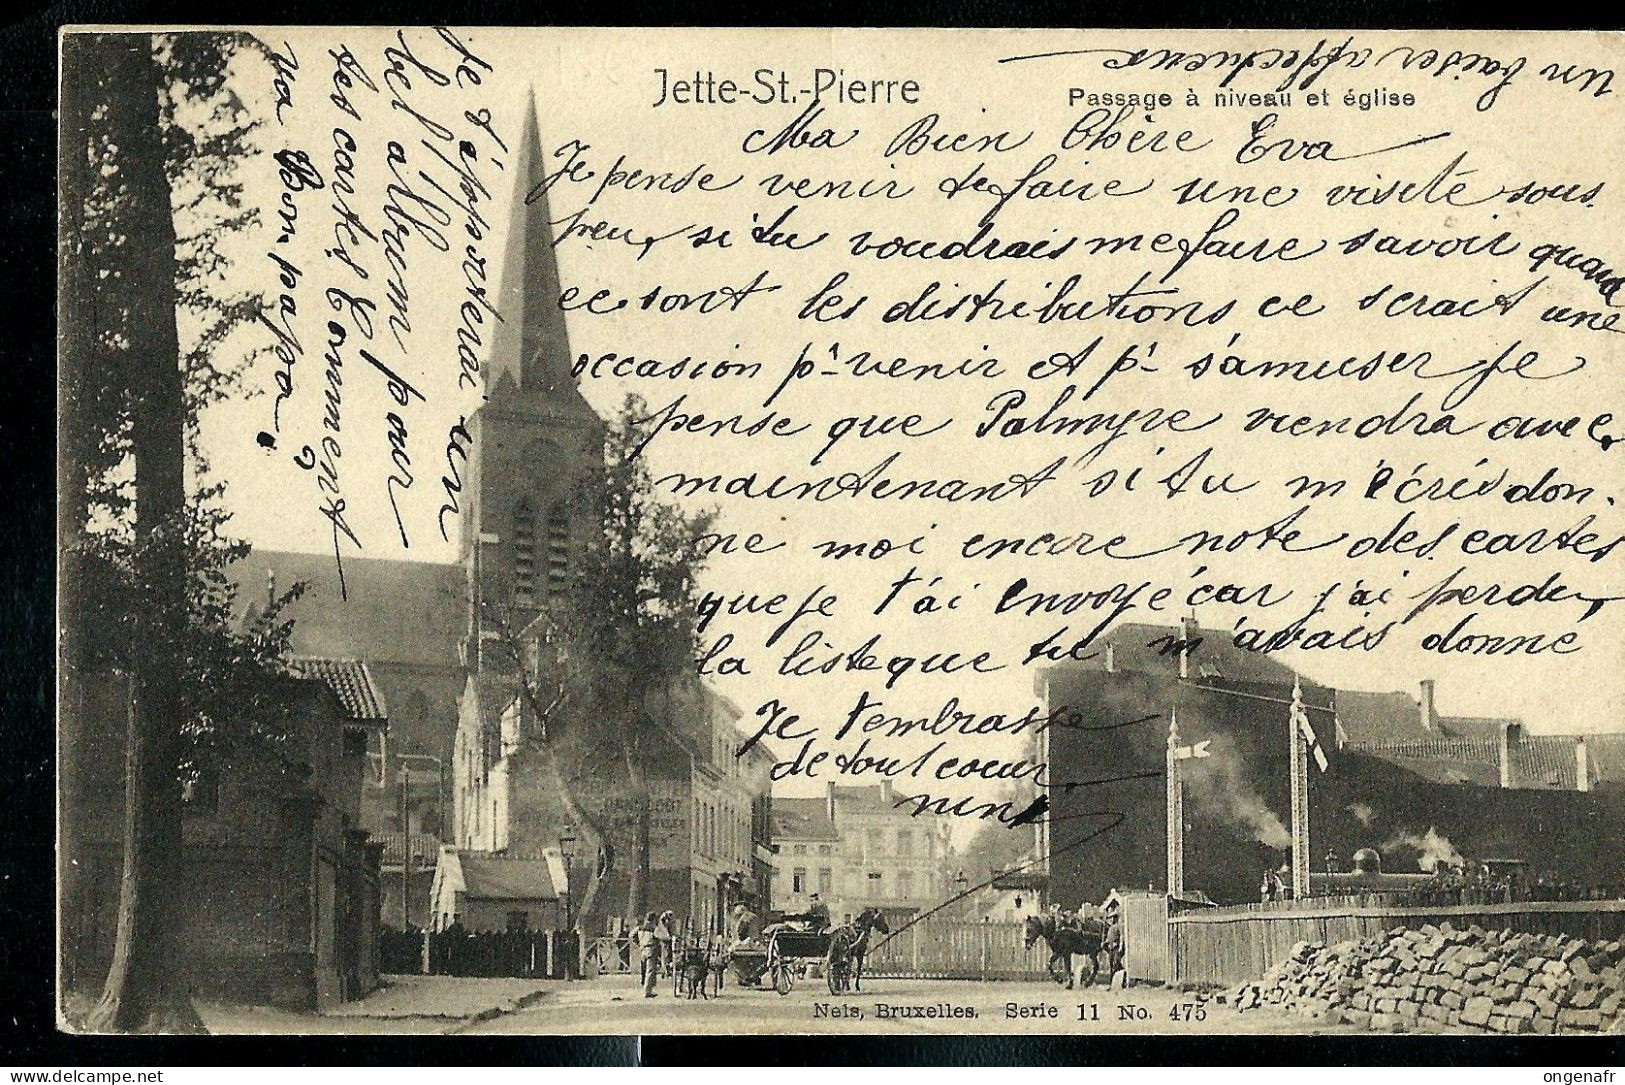 Jette-St.-Pierre
Passage à niveau et église
Un baiser affectueux
Ma Bien Chère Eva
Je pense venir te faire une visite sous
peu, si tu voudrais me faire savoir quand
ce sont les distributions ce serait une
occasion pr venir et pr s'amuser je
pense que Palmyre viendra avec
maintenant si tu m'écris don-
ne moi encore note des cartes
que je t'ai envoyé car j'ai perdu
la liste que tu m'avais donné
Je t'embrasse
de tout coeur
Je t'apporterai un
bel album pour
tes cartes Comment
va Bon papa ?
Nels, Bruxelles. Serie 11 No. 475
delcampe.net
ongenafr